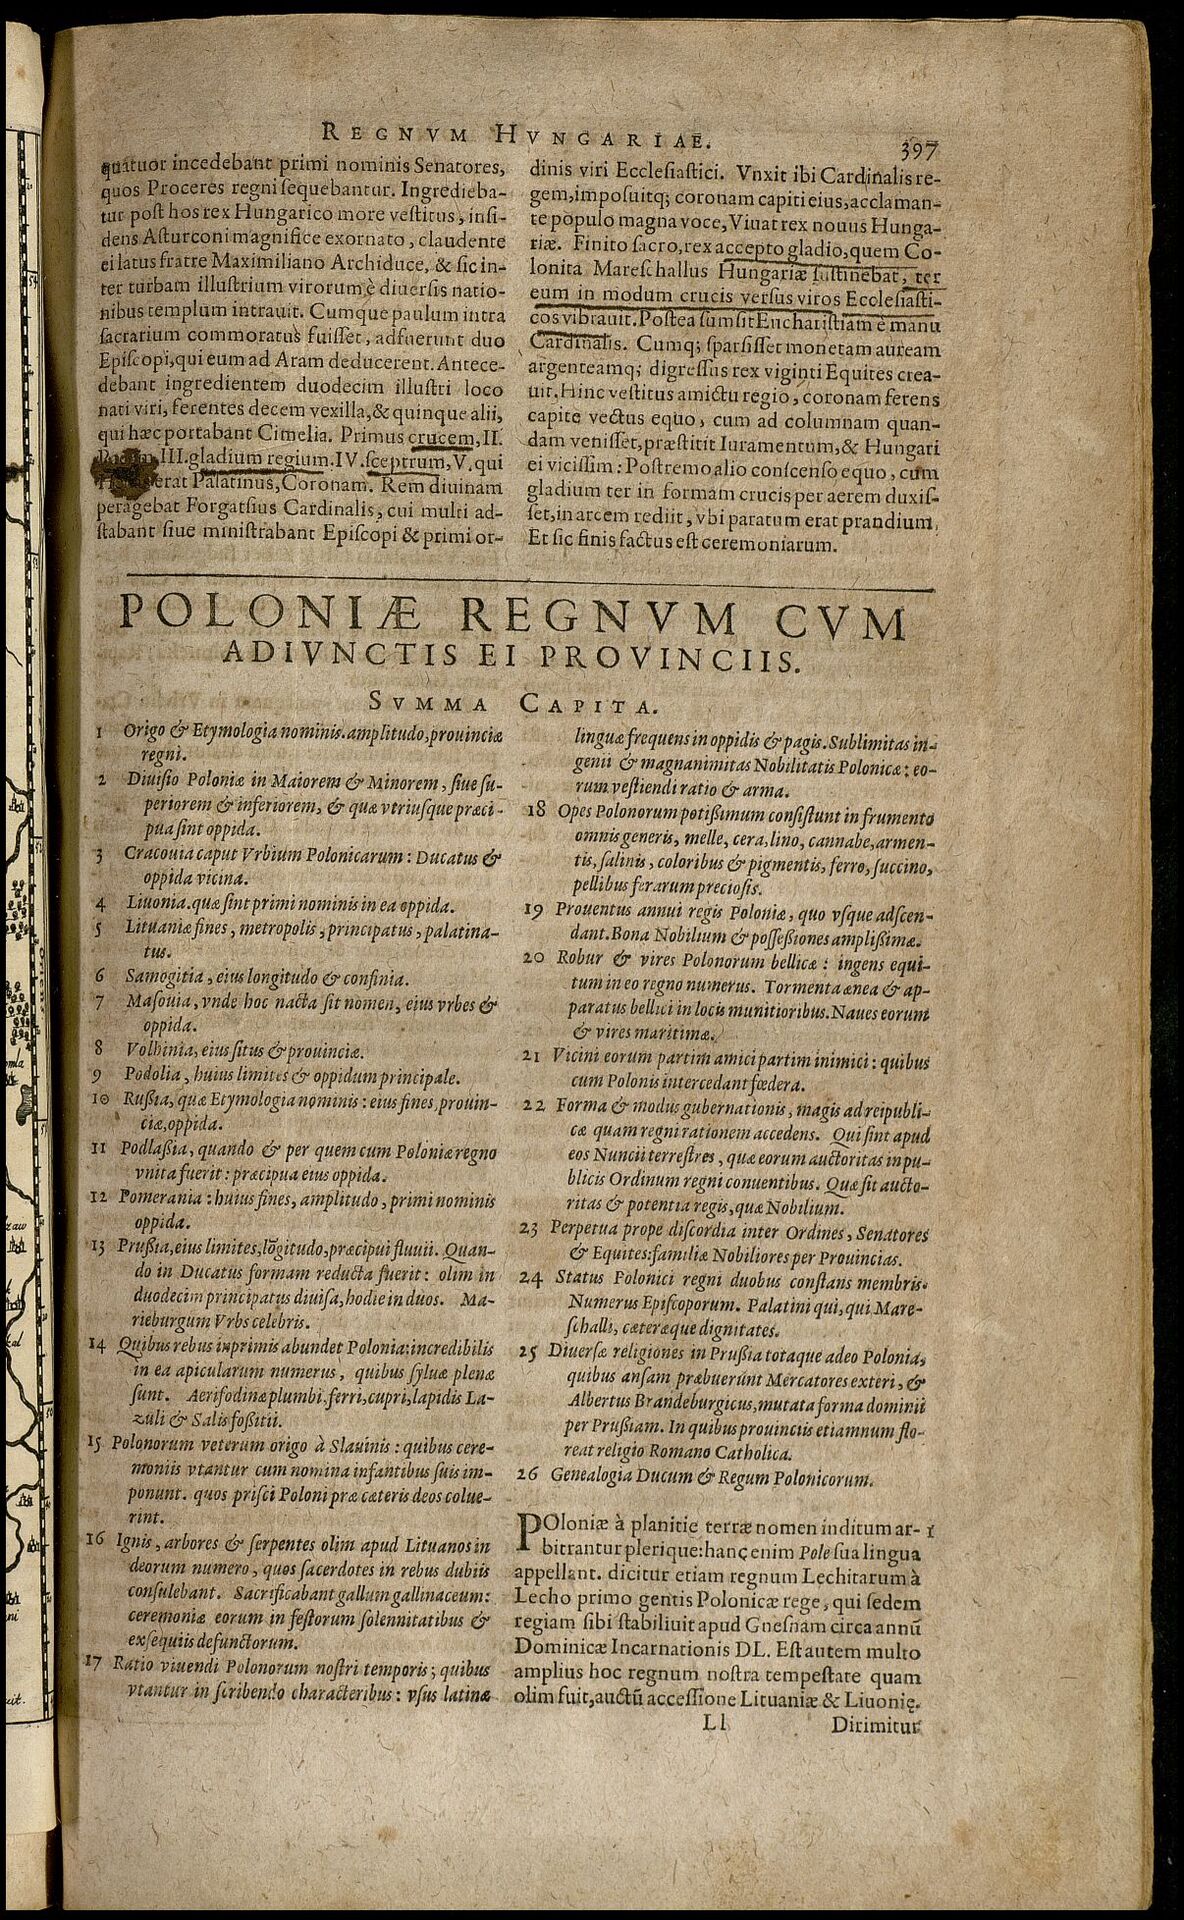 REGNVM HVNGARIAE.
397
quatuor incedebant primi nominis Senatores,
quos Proceres regni sequebantur. Ingredieba-
tur post hos rex Hungarico more vestitus, insi-
dens Asturconi magnifice exornato, claudente
ei latus fratre Maximiliano Archiduce, & sic in-
ter turbam illustrium virorum è diuersis natio-
nibus templum intrauit. Cumque paulum intra
sacrarium commoratus fuisset, adfuerunt duo
Episcopi, qui eum ad Aram deducerent. Antece-
debant ingredientem duodecim illustri loco
nati viri, ferentes decem vexilla, & quinque alii,
qui hæc portabant Cimelia. Primus crucem, II.
III. gladium regium. IV. sceptrum, V. qui
erat Palatinus, Coronam. Rem diuinam
peragebat Forgatsius Cardinalis, cui multi ad-
stabant siue ministrabant Episcopi & primi or-
dinis viri Ecclesiastici. Vnxit ibi Cardinalis re-
gem, imposuitq; coronam capiti eius, acclaman-
te populo magna voce, Viuat rex nouus Hunga-
riæ. Finito sacro, rex accepto gladio, quem Co-
lonita Mareschallus Hungariæ sustinebat, ter
eum in modum crucis versus viros Ecclesiasti-
cos vibrauit. Postea sumsit Eucharistiam è manu
Cardinalis. Cumq; sparsisset monetam auream
argenteamq; digressus rex viginti Equites crea-
uit. Hinc vestitus amictu regio, coronam ferens
capite vectus equo, cum ad columnam quan-
dam venisset, præstitit Iuramentum, & Hungari
ei vicissim: Postremo alio conscenso equo, cum
gladium ter in formam crucis per aerem duxis-
set, in arcem rediit, vbi paratum erat prandium,
Et sic finis factus est ceremoniarum.
POLONIÆ REGNVM CVM
ADIVNCTIS EI PROVINCIIS.
SVMMA CAPITA.
1 Origo & Etymologia nominis. amplitudo, prouinciæ
regni.
2 Diuisio Poloniæ in Maiorem & Minorem, siue su-
periorem & inferiorem, & quæ vtriusque præci-
pua sint oppida.
3 Cracouia caput Vrbium Polonicarum: Ducatus &
oppida vicina.
4 Liuonia. quæ sint primi nominis in ea oppida.
5 Lituaniæ fines, metropolis, principatus, palatina-
tus.
6 Samogitia, eius longitudo & confinia.
7 Masouia, vnde hoc nacta sit nomen, eius vrbes &
oppida.
8 Volhinia, eius situs & prouinciæ.
9 Podolia, huius limites & oppidum principale.
10 Rußia, quæ Etymologia nominis: eius fines, prouin-
ciæ, oppida.
11 Podlaßia, quando & per quem cum Poloniæ regno
vnita fuerit: præcipua eius oppida.
12 Pomerania: huius fines, amplitudo, primi nominis
oppida.
13 Prußia, eius limites, lõgitudo, præcipui fluuii. Quan-
do in Ducatus formam reducta fuerit: olim in
duodecim principatus diuisa, hodie in duos. Ma-
rieburgum Vrbs celebris.
14 Quibus rebus inprimis abundet Polonia: incredibilis
in ea apicularum numerus, quibus syluæ plenæ
sunt. Aerifodinæ plumbi, ferri, cupri, lapidis La-
zuli & Salis foßitii.
15 Polonorum veterum origo à Slauinis: quibus cere-
moniis vtantur cum nomina infantibus suis im-
ponunt. quos prisci Poloni præ cæteris deos colue-
rint.
16 Ignis, arbores & serpentes olim apud Lituanos in
deorum numero, quos sacerdotes in rebus dubiis
consulebant. Sacrificabant gallum gallinaceum:
ceremoniæ eorum in festorum solennitatibus &
exsequiis defunctorum.
17 Ratio viuendi Polonorum nostri temporis; quibus
vtantur in scribendo characteribus: vsus latinæ
linguæ frequens in oppidis & pagis. Sublimitas in-
genii & magnanimitas Nobilitatis Polonicæ: eo-
rum vestiendi ratio & arma.
18 Opes Polonorum potißimum consistunt in frumento
omnis generis, melle, cera, lino, cannabe, armen-
tis, salinis, coloribus & pigmentis, ferro, succino,
pellibus ferarum preciosis.
19 Prouentus annui regis Poloniæ, quo vsque adscen-
dant. Bona Nobilium & possessiones amplißimæ.
20 Robur & vires Polonorum bellicæ: ingens equi-
tum in eo regno numerus. Tormenta ænea & ap-
paratus bellici in locis munitioribus. Naues eorum
& vires maritimæ.
21 Vicini eorum partim amici partim inimici: quibus
cum Polonis intercedant fœdera.
22 Forma & modus gubernationis, magis ad reipubli-
cæ quam regni rationem accedens. Qui sint apud
eos Nuncii terrestres, quæ eorum auctoritas in pu-
blicis Ordinum regni conuentibus. Quæ sit aucto-
ritas & potentia regis, quæ Nobilium.
23 Perpetua prope discordia inter Ordines, Senatores
& Equites: familiæ Nobiliores per Prouincias.
24 Status Polonici regni duobus constans membris.
Numerus Episcoporum. Palatini qui, qui Mare-
schalli, cæteræque dignitates.
25 Diuersæ religiones in Prußia totaque adeo Polonia,
quibus ansam præbuerunt Mercatores exteri, &
Albertus Brandeburgicus, mutata forma dominii
per Prußiam. In quibus prouinciis etiamnum flo-
reat religio Romano Catholica.
26 Genealogia Ducum & Regum Polonicorum.
POloniæ à planitie terræ nomen inditum ar- 1
bitrantur plerique: hanc enim Pole sua lingua
appellant. dicitur etiam regnum Lechitarum à
Lecho primo gentis Polonicæ rege, qui sedem
regiam sibi stabiliuit apud Gnesnam circa annũ
Dominicæ Incarnationis DL. Est autem multo
amplius hoc regnum nostra tempestate quam
olim fuit, auctũ accessione Lituaniæ & Liuonię.
Ll
Dirimitur